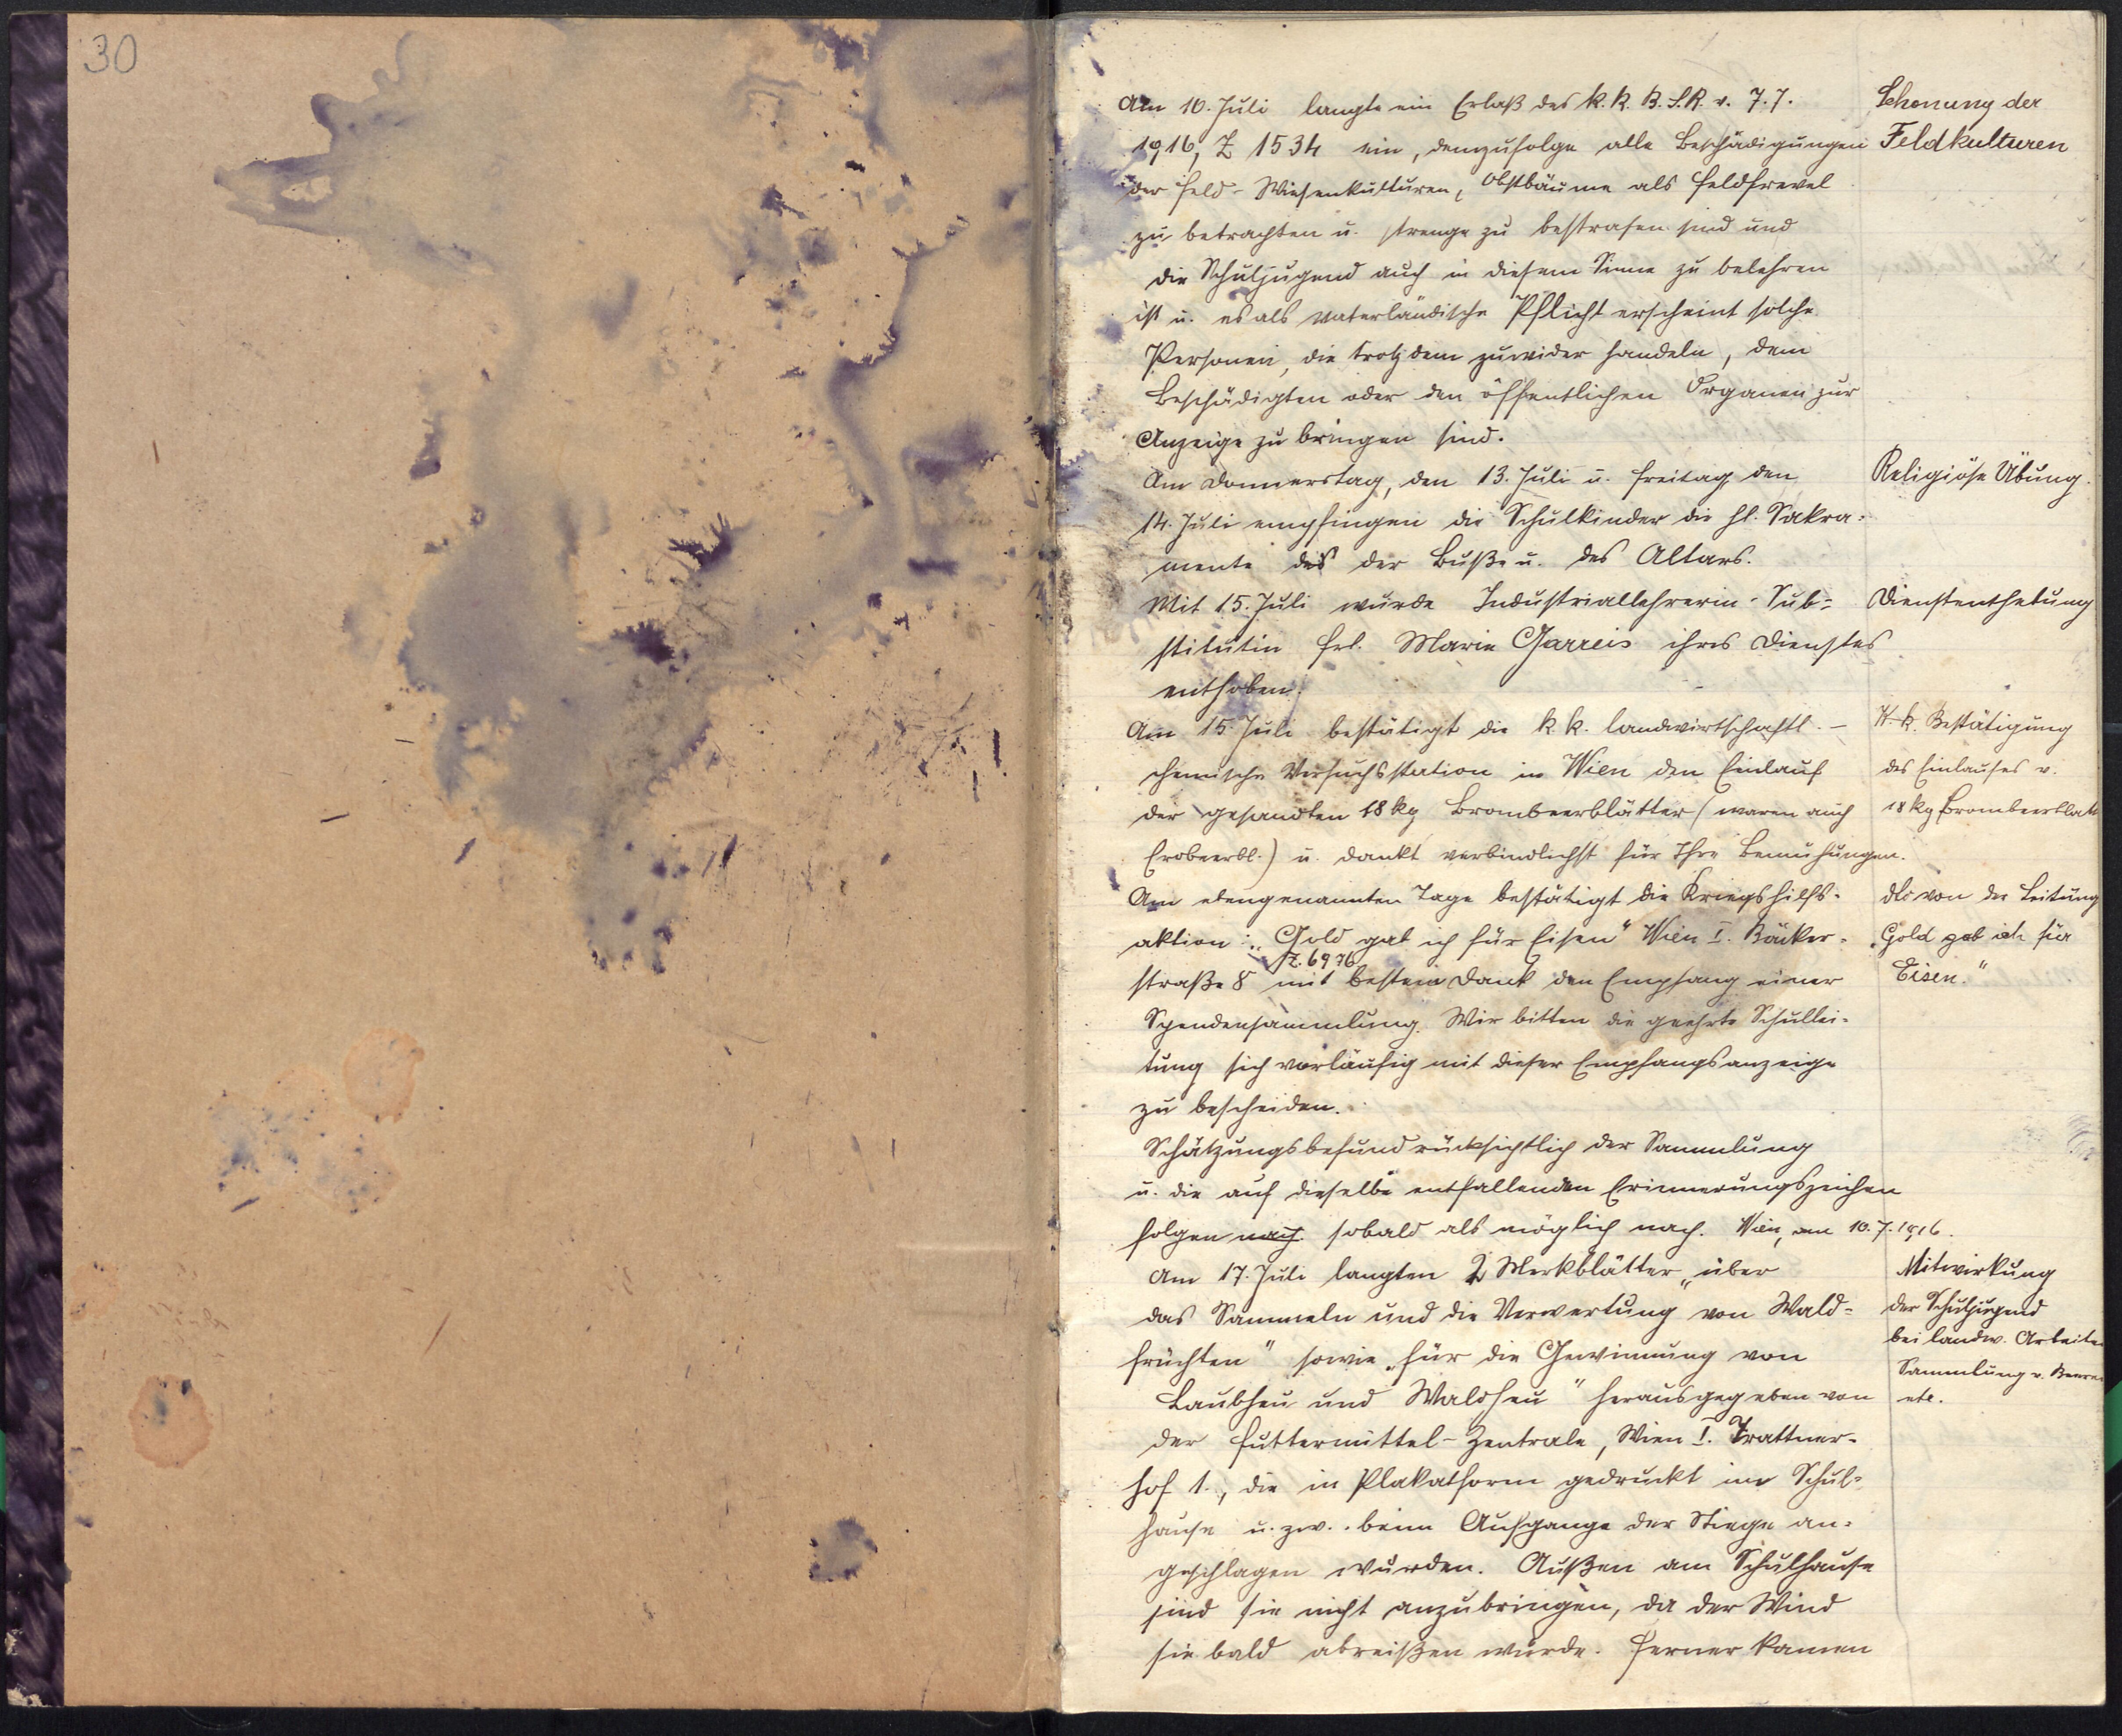 30
Am 10. Juli langte ein Erlaß des k. k. B. S. R. v. 7. 7.
1916, Z 1534 ein, demzufolge alle Beschädigungen
der Feld-Wiesenkulturen, Obstbäume als Feldfrevel
zu betrachten u. strenge zu bestrafen sind und
die Schuljugend auch in diesem Sinne zu belehren
ist u. es als vaterländische Pflicht erscheint solche
Personen, die trotzdem zuwider handeln, dem
Beschädigten oder den öffentlichen Organen zur
Anzeige zu bringen sind.
Am Donnerstag, den 13. Juli u. Freitag den
14. Juli empfingen die Schulkinder die hl. Sakra-
mente des der Buße u. des Altars.
Mit 15. Juli wurde Industriallehrerin-Sub-
stitutin Frl. Marie Garreis ihres Dienstes
enthoben.
Am 15. Juli bestätigt die k. k. landwirtschaftl.-
chemische Versuchsstation in Wien den Einlauf
der gesandten 18 kg Brombeerblätter (waren auch
Erdbeerbl.) u. dankt verbindlichst für Ihre Bemühungen.
Am ebengenannten Tage bestätigt die Kriegshilfs-
aktion: „Gold gab ich für Eisen" Wien I. Bäcker-
Z. 6976
straße 8 mit bestem Dank den Empfang einer
Spendensammlung. Wir bitten die geehrte Schullei-
tung sich vorläufig mit dieser Empfangsanzeige
zu bescheiden.
Schätzungsbefund rücksichtlich der Sammlung
u. die auf dieselbe entfallenden Erinnerungszeichen
folgen nach. sobald als möglich nach. Wien, am 10. 7. 1916.
Am 17. Juli langten 2 Merkblätter „über
das Sammeln und die Verwertung von Wald-
früchten" sowie „für die Gewinnung von
Laubheu und Waldheu" herausgegeben von
der Futtermittel-Zentrale, Wien I. Trattner-
hof 1., die in Plakatform gedruckt im Schul-
hause u. zw. beim Aufgange der Stiege an-
geschlagen wurden. Außen am Schulhause
sind sie nicht anzubringen, da der Wind
sie bald abreißen würde. Ferner kamen
Schonung der
Feldkulturen
Religiöse Übung.
Dienstenthebung
K. k. Bestätigung
des Einlaufes v.
18 kg Brombeerblätt
dto von der Leitung
„Gold gab ich für
Eisen."
Mitwirkung
der Schuljugend
bei landw. Arbeiten
Sammlung v. Beeren
etc.